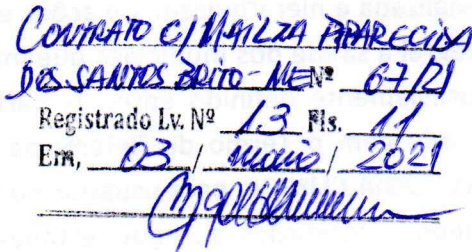 CONTRATO C/ MAILZA APARECIDA
DOS SANTOS BRITO-ME Nº 67/21
Registrado Lv. Nº 13 Fls. 11
Em, 03 / maio / 2021